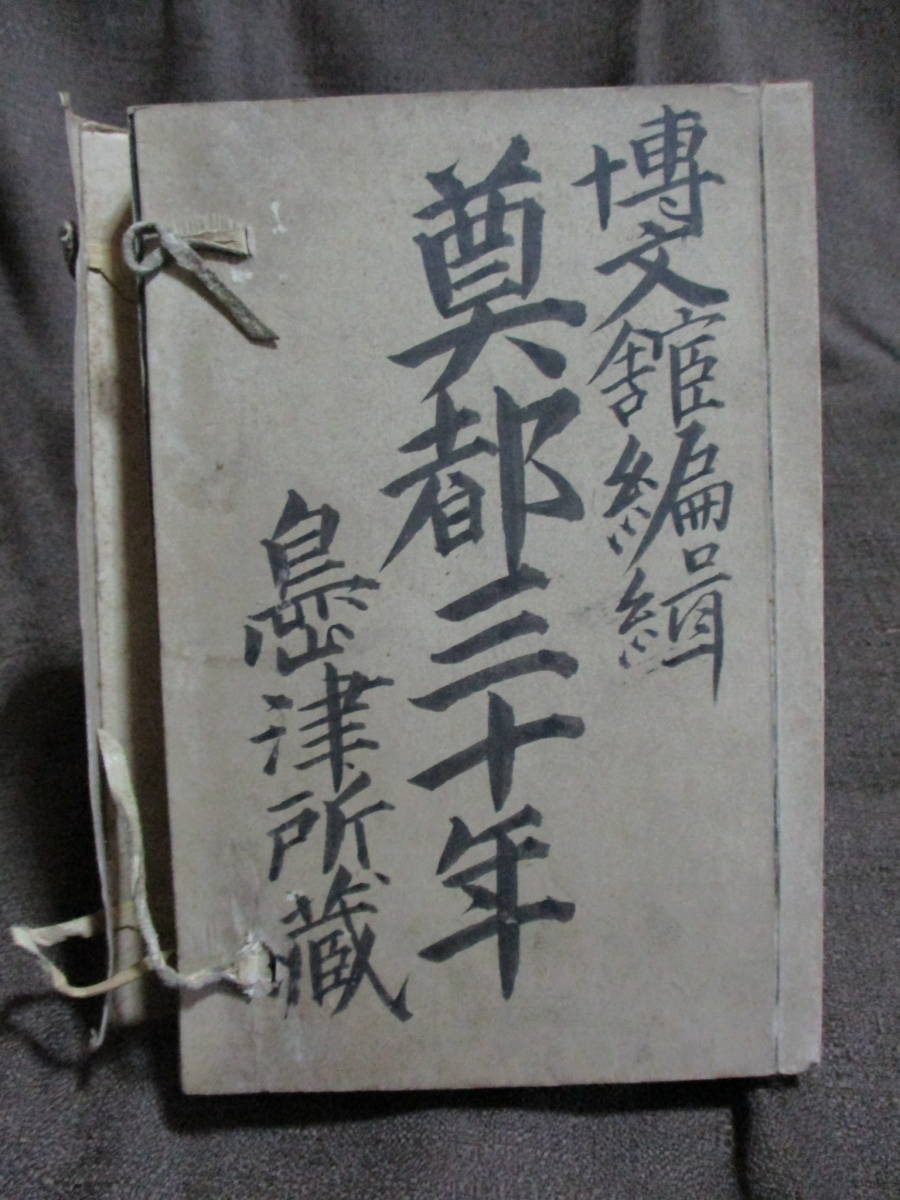 博文舘編緝
奠都三十年
島津所藏